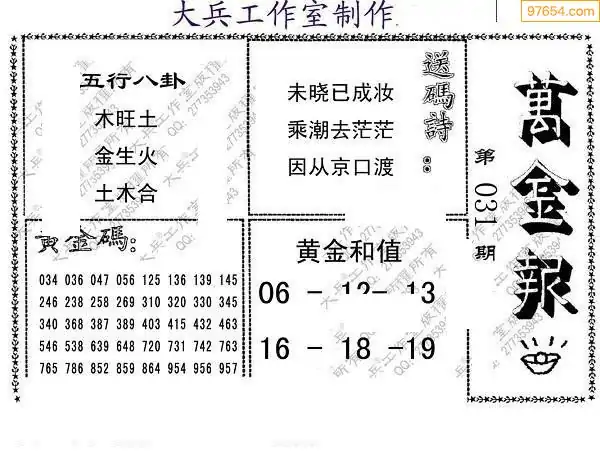 大兵工作室制作
97654.com
萬金報
第031期
送碼詩：
未晓已成妆
乘潮去茫茫
因从京口渡
五行八卦
木旺土
金生火
土木合
黄金碼：
034 036 047 056 125 136 139 145
246 238 258 269 310 320 330 345
340 368 387 389 403 415 432 463
546 538 639 648 720 731 742 763
765 786 852 859 864 954 956 957
黄金和值
06 - 12 - 13
16 - 18 - 19
大兵工作室版權所有
QQ:277353943